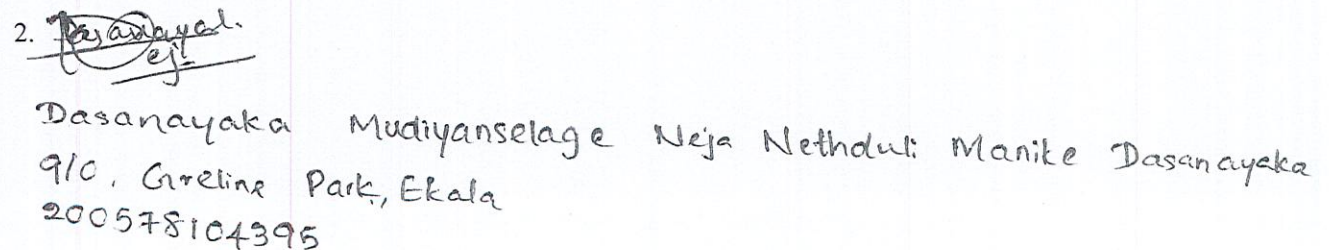 2.
Dasanayaka Mudiyanselage Neja Nethduli Manike Dasanayaka
9/C, Greline Park, Ekala
200578104395